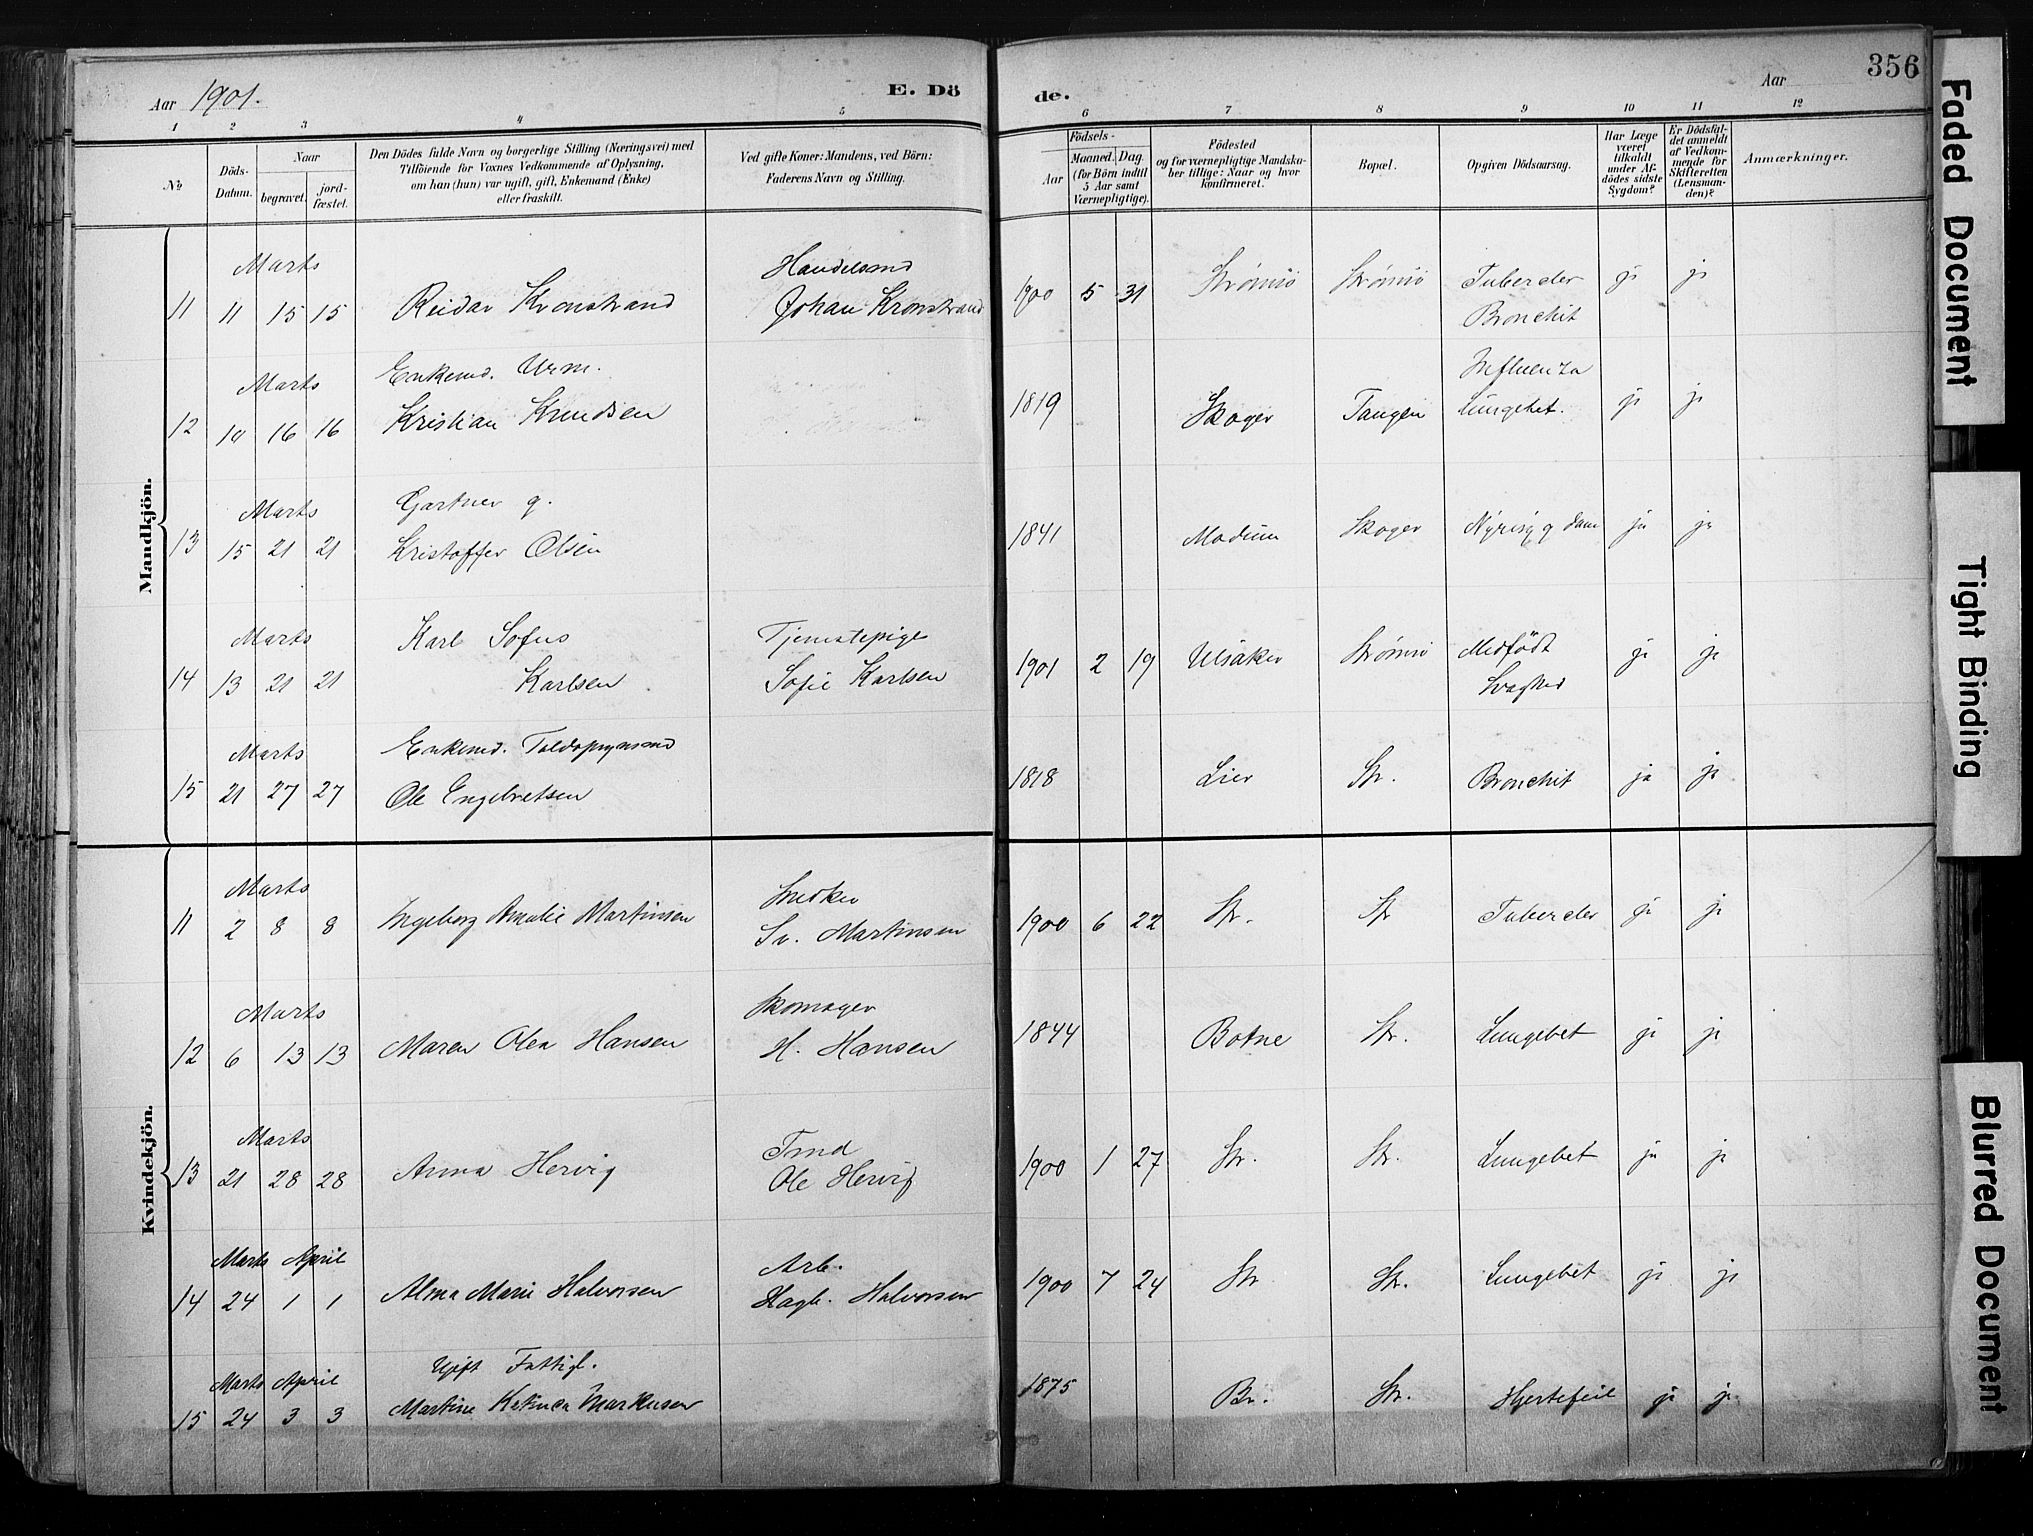 Aar 1901.
E. Dö
de.
Aar
356
1 2 3 4 5 6 7 8 9 10 11 12
№
Döds-Datum.
Naar
begravet.
jord-fæstet.
Den Dödes fulde Navn og borgerlige Stilling (Næringsvei) med
Tilföiende for Voxnes Vedkommende af Oplysning,
om han (hun) var ugift, gift, Enkemand (Enke)
eller fraskilt.
Ved gifte Koner: Mandens, ved Börn:
Faderens Navn og Stilling.
Födsels-
Aar
Maaned. Dag.
(for Börn indtil
5 Aar samt
Værnepligtige).
Födested
og for værnepligtige Mandska-
ber tillige: Naar og hvor
konfirmeret.
Bopæl.
Opgiven Dödsaarsag.
Har Læge
været
tilkaldt
under Af-
dödes sidste
Sygdom?
Er Dödsfal-
det anmeldt
af Vedkom-
mende for
Skifteretten
(Lensman-
den)?
Anmærkninger.
Mandkjön.
Marts Handelsmd
11 11 15 15 Reidar Kronstrand Johan Kronstrand 1900 5 31 Strømsö Strømsö Tubercler ja ja
Bronchit
Marts Enkemd. Urm. Influenza
12 10 16 16 Kristian Knudsen 1819 Skoger Tangen Lungebet. ja ja
Marts Gartner g.
13 15 21 21 Kristoffer Olsen 1841 Modum Skoger ja ja
Marts Karl Sofus Tjenestepige
14 13 21 21 Karlsen Sofie Karlsen 1901 2 19 Ulsaker Strømsö Medfödt ja ja
Svaghed
Marts Enkemd. Toldopsynsmd
15 21 27 27 Ole Engebretsen 1818 Lier Str. Bronchit ja ja
Kvindekjön.
Marts Snedker
11 2 8 8 Ingeborg Amalie Martinsen Sv. Martinsen 1900 6 22 Str. Str Tubercler ja ja
Marts Skomager
12 6 13 13 Maren Olea Hansen H. Hansen 1844 Botne Str. Lungebet ja ja
Marts Tmd
13 21 28 28 Anna Hervig Ole Hervig 1900 1 27 Str. Str. Lungebet ja ja
Marts April Arb.
14 24 1 1 Alma Marie Halvorsen Hagb. Halvorsen 1900 7 24 Str Str. Lungebet ja ja
Marts April Ugift Fattigl.
15 24 3 3 Martine Markusen 1875 Br. Str. Hjertefeil ja ja
Faded Document
Tight Binding
Blurred Document